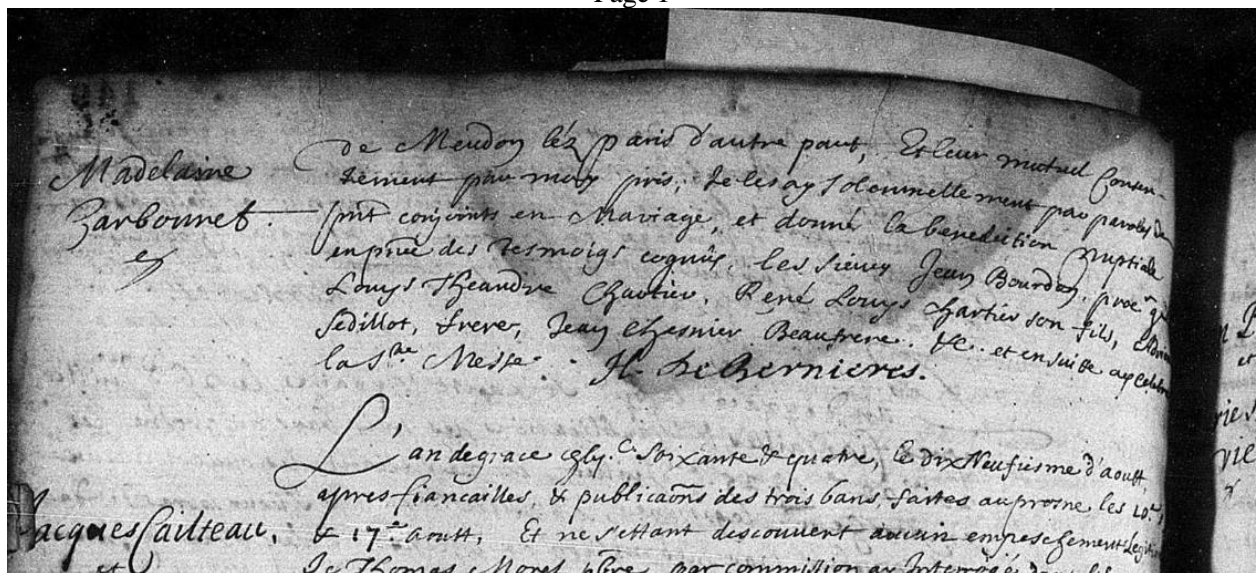 de Meudon léz Paris d'autre part, Et leur mutuel Consen-
Madelaine
tement par moy pris, Je les ay solemnellement par paroles de
Carbonnet.
pñt conjoints en Mariage, et donné la benediction nuptiale
en pñce des tesmoigs cognûs, les sieurs Jean Bourdon, proc^r g^l
et
Louys Theandre Chartier, René Louys Chartier son fils,
Sedillot, frere, Jean Chesnier Beaufrere. &c. et en suitte ay celebré
la S^te Messe. H. de Bernieres.
L'an de grace soixante & quatre, le dix Neufiesme d'aoust,
apres fiancailles, & publicaõns des trois bans faites au prosne les 10^e
Jacques Cailteau,
& 17^e aoust, Et ne s'estant descouvert aucun empeschement Legit
et
Je Thomas Morel pbre par commission ay Interrogé